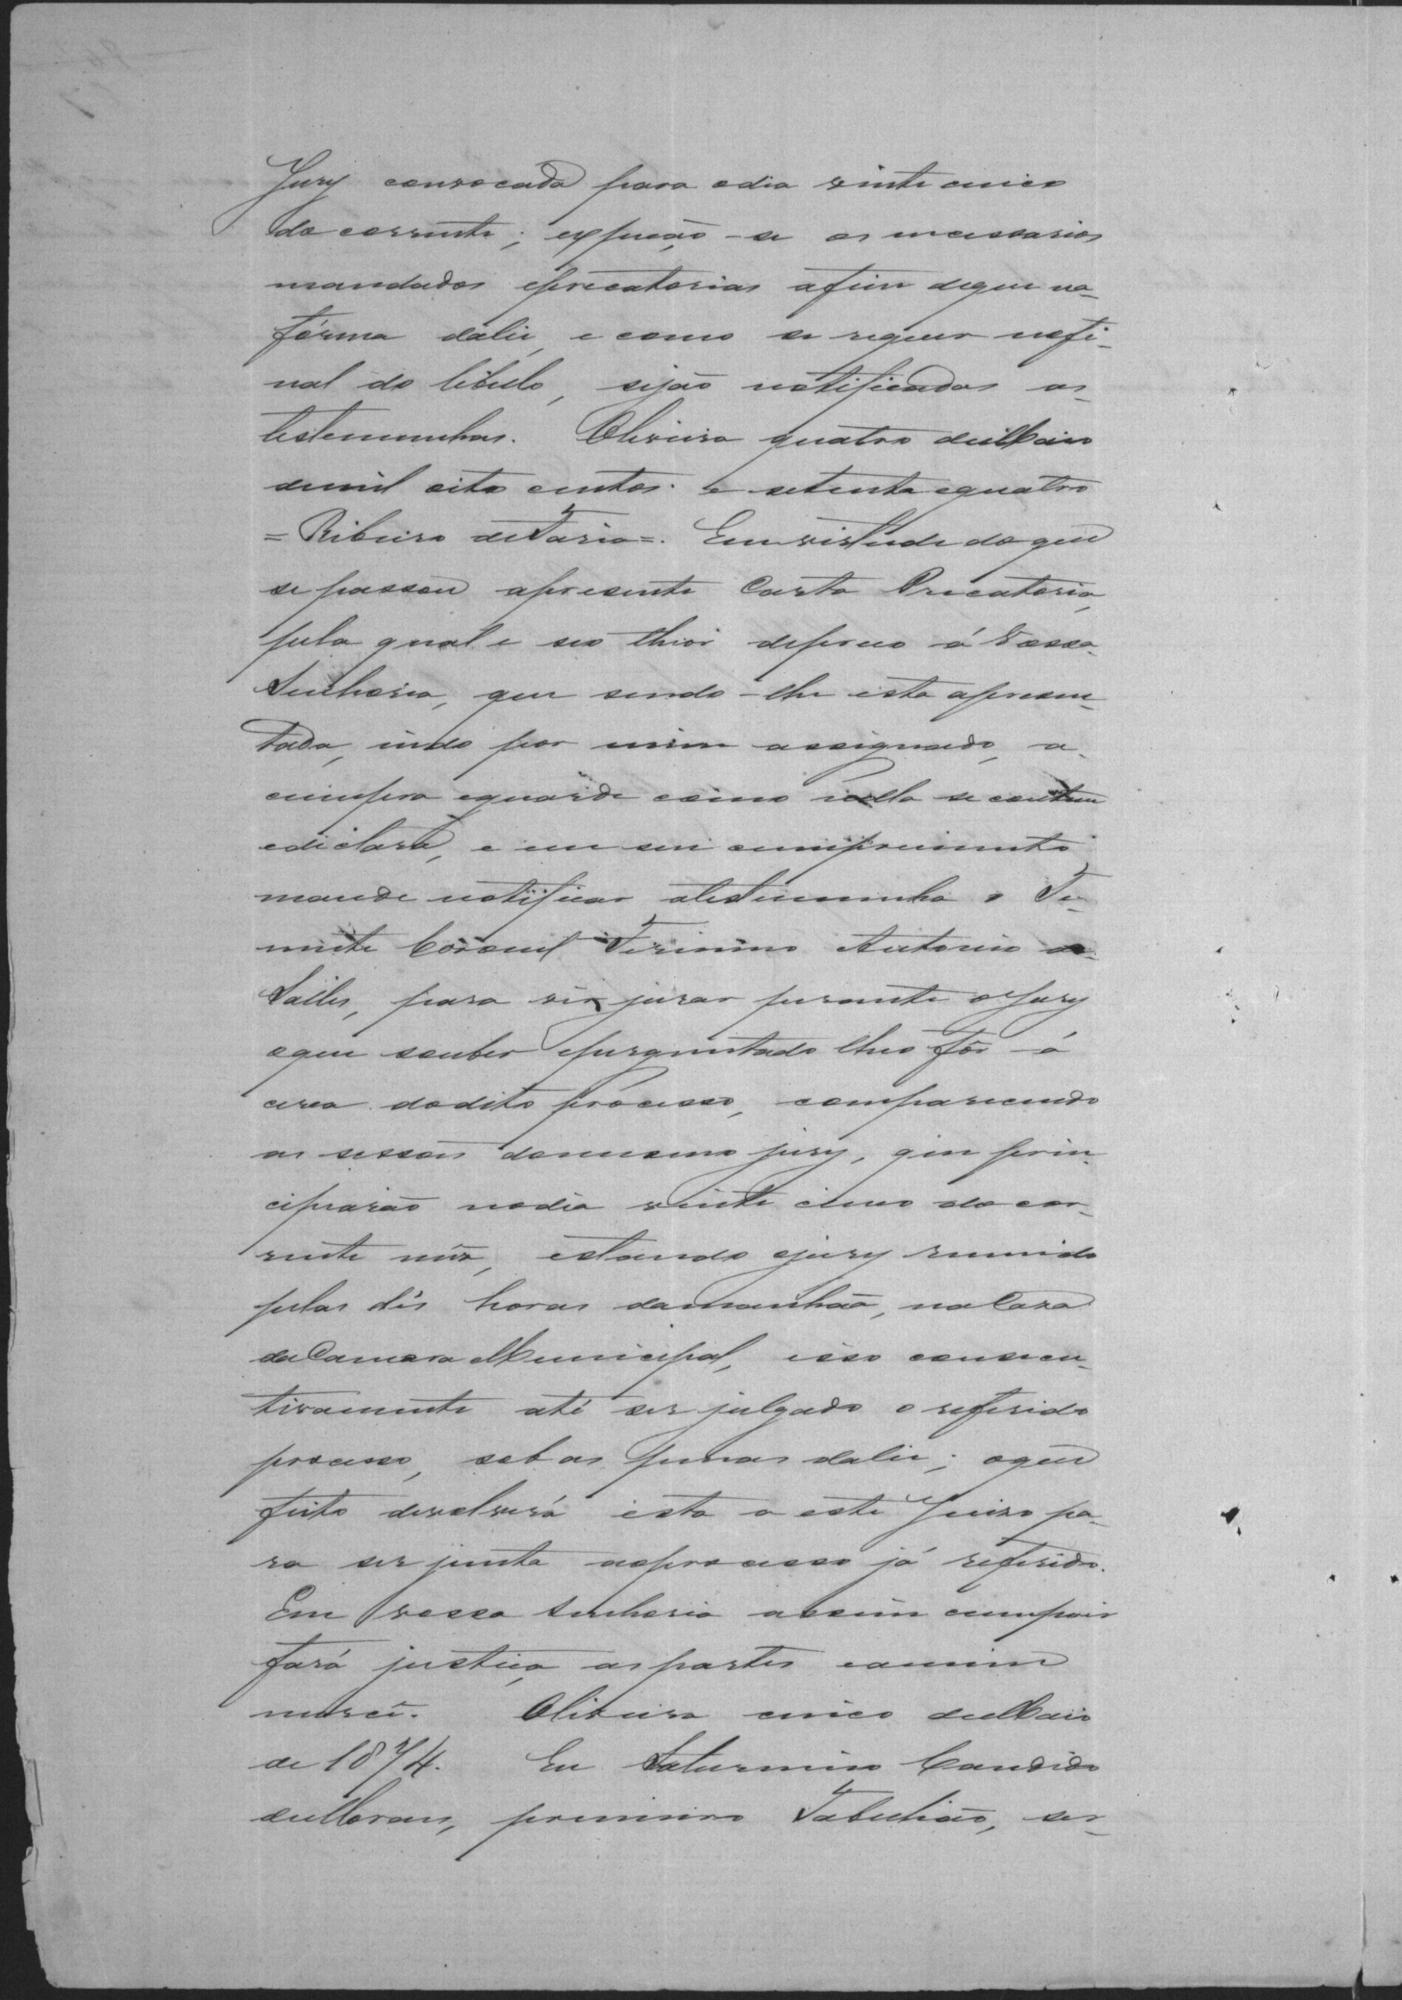 Jury convocada para odia vinte cinco
do corrente; expeção-se os necessarios
mandados eprecatorias afim deque na
fórma dalei, e como se requer nofi-
nal do libello, sejão notificadas as
testemunhas. Oliveira quatro deMaio
demil oito centos e setenta equatro
= Ribeiro deFaria =. Emvirtude doque
se passou apresente Carta Precatoria,
pela qual e seo theor depreco á Vossa
Senhoria, que sendo-lhe esta apresen-
tada, indo por mim assignado, a
cumpra eguarde como nella se contem
edeclara, e em seu cumprimento
mande notificar atestemunha o Te-
nente Coronel Firmino Antonio de
Salles, para vir jurar perante oJury
oque souber eperguntado lheo fôr á
cerca dodito processo, comparecendo
as sessões domesmo jury, que prin-
cipiarão nodia vinte cinco do cor-
rente mez, estando ojury reunido
pelas dés horas damanhãa, naCasa
daCamara Municipal, eisso consecu-
tivamente até ser julgado o referido
processo, sob as penas dalei; oque
feito devolverá esta a este Juizo pa-
ra ser junta aoprocesso já referido.
Em vossa Senhoria assim cumprir
fará justiça, aspartes eamim
mercê. Oliveira cinco deMaio
de 1874. Eu Saturnino Candido
deMoraes, primeiro Tabelião, ser-